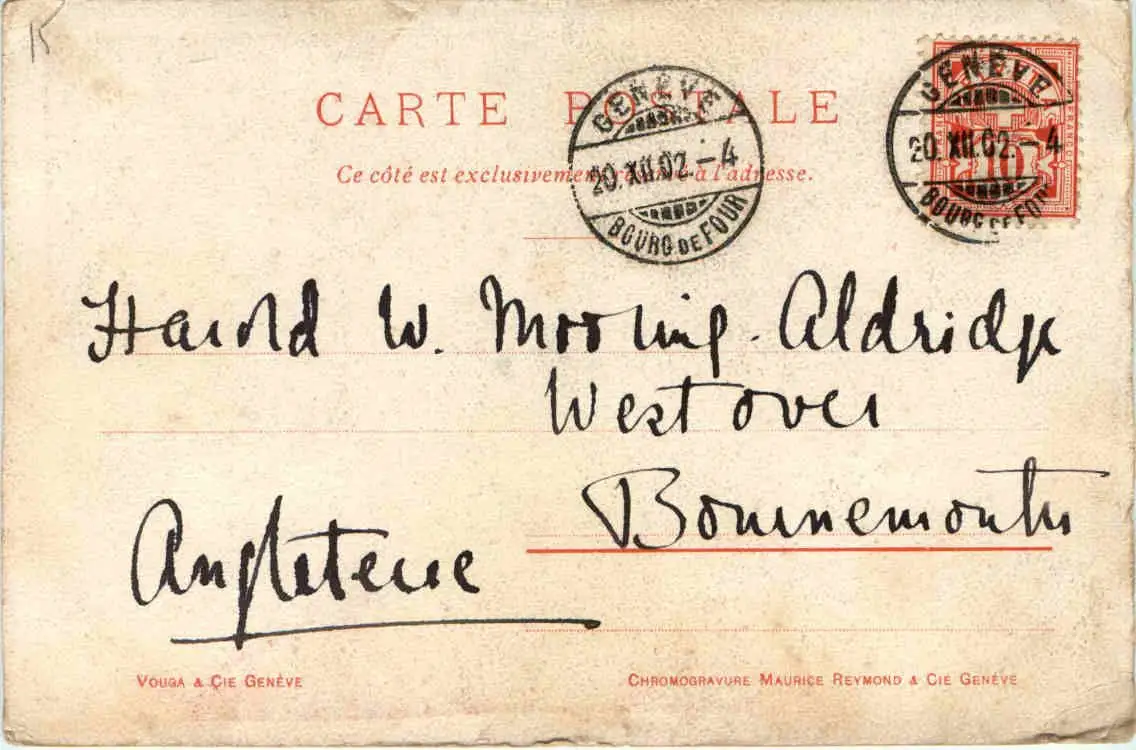 15
CARTE POSTALE
Ce côté est exclusivement réservé à l'adresse.
GENÈVE
20.XII.02.–4
BOURG DE FOUR
GENÈVE
20.XII.02.–4
BOURG DE FOUR
10
FRANCO
Harold W. Mooring-Aldridge
Westover
Bournemouth
Angleterre
VOUGA & CIE GENÈVE
CHROMOGRAVURE MAURICE REYMOND & CIE GENÈVE